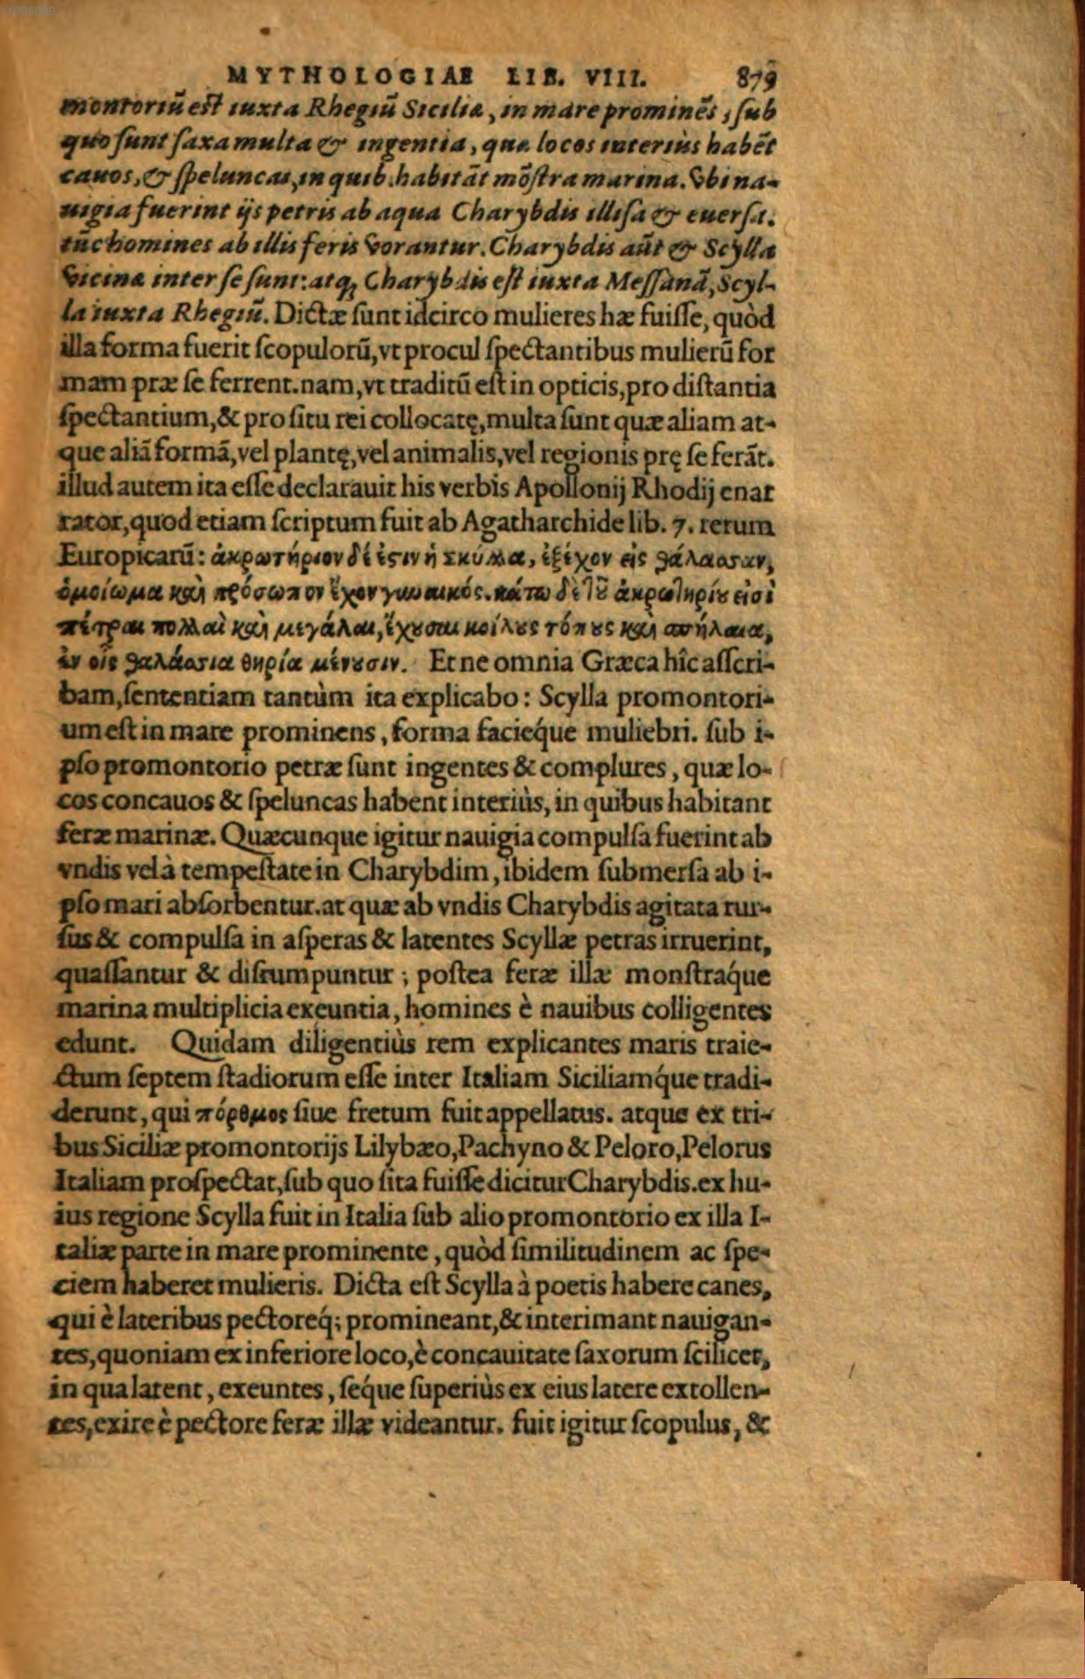 MYTHOLOGIAE LIB. VIII. 879
montoriũ est iuxta Rhegiũ Siciliæ, in mare prominẽs, sub
quo sunt saxa multa & ingentia, quæ locos interiùs habẽt
cauos, & speluncas, in quib. habitãt mõstra marina. Vbi na-
uigia fuerint ijs petris ab aqua Charybdis illisa & euersa.
tũc homines ab illis feris vorantur. Charybdis aũt & Scylla
vicinæ inter se sunt: atq; Charybdis est iuxta Messanã, Scyl-
la iuxta Rhegiũ. Dictæ sunt idcirco mulieres hæ fuisse, quòd
illa forma fuerit scopulorũ, vt procul spectantibus mulierũ for
mam præ se ferrent. nam, vt traditũ est in opticis, pro distantia
spectantium, & pro situ rei collocatę, multa sunt quæ aliam at-
que aliã formã, vel plantę, vel animalis, vel regionis prę se ferãt.
illud autem ita esse declarauit his verbis Apollonij Rhodij enar
rator, quod etiam scriptum fuit ab Agatharchide lib. 7. rerum
Europicarũ: ἀκρωτήριον δέ ἐστιν ἡ σκύλλα, ἐξέχον εἰς θάλασσαν,
ὁμοίωμα καὶ πρόσωπον ἔχον γυναικός. κάτω δὲ τοῦ ἀκρωτηρίου εἰσὶ
πέτραι πολλαὶ καὶ μεγάλαι, ἔχουσαι κοίλους τόπους καὶ σπήλαια,
ἐν οἷς θαλάσσια θηρία μένουσιν. Et ne omnia Græca hîc asscri-
bam, sententiam tantùm ita explicabo: Scylla promontori-
um est in mare prominens, forma facieq́ue muliebri. sub i-
pso promontorio petræ sunt ingentes & complures, quæ lo-
cos concauos & speluncas habent interiùs, in quibus habitant
feræ marinæ. Quæcunque igitur nauigia compulsa fuerint ab
vndis vel à tempestate in Charybdim, ibidem submersa ab i-
pso mari absorbentur. at quæ ab vndis Charybdis agitata rur-
sus & compulsa in asperas & latentes Scyllæ petras irruerint,
quassantur & disrumpuntur; postea feræ illæ monstraq́ue
marina multiplicia exeuntia, homines è nauibus colligentes
edunt. Quidam diligentiùs rem explicantes maris traie-
ctum septem stadiorum esse inter Italiam Siciliamq́ue tradi-
derunt, qui πόρθμος siue fretum fuit appellatus. atque ex tri-
bus Siciliæ promontorijs Lilybæo, Pachyno & Peloro, Pelorus
Italiam prospectat, sub quo sita fuisse dicitur Charybdis. ex hu-
ius regione Scylla fuit in Italia sub alio promontorio ex illa I-
taliæ parte in mare prominente, quòd similitudinem ac spe-
ciem haberet mulieris. Dicta est Scylla à poetis habere canes,
qui è lateribus pectoreq́; promineant, & interimant nauigan-
tes, quoniam ex inferiore loco, è concauitate saxorum scilicet,
in qua latent, exeuntes, seq́ue superiùs ex eius latere extollen-
tes, exire è pectore feræ illæ videantur. fuit igitur scopulus, &